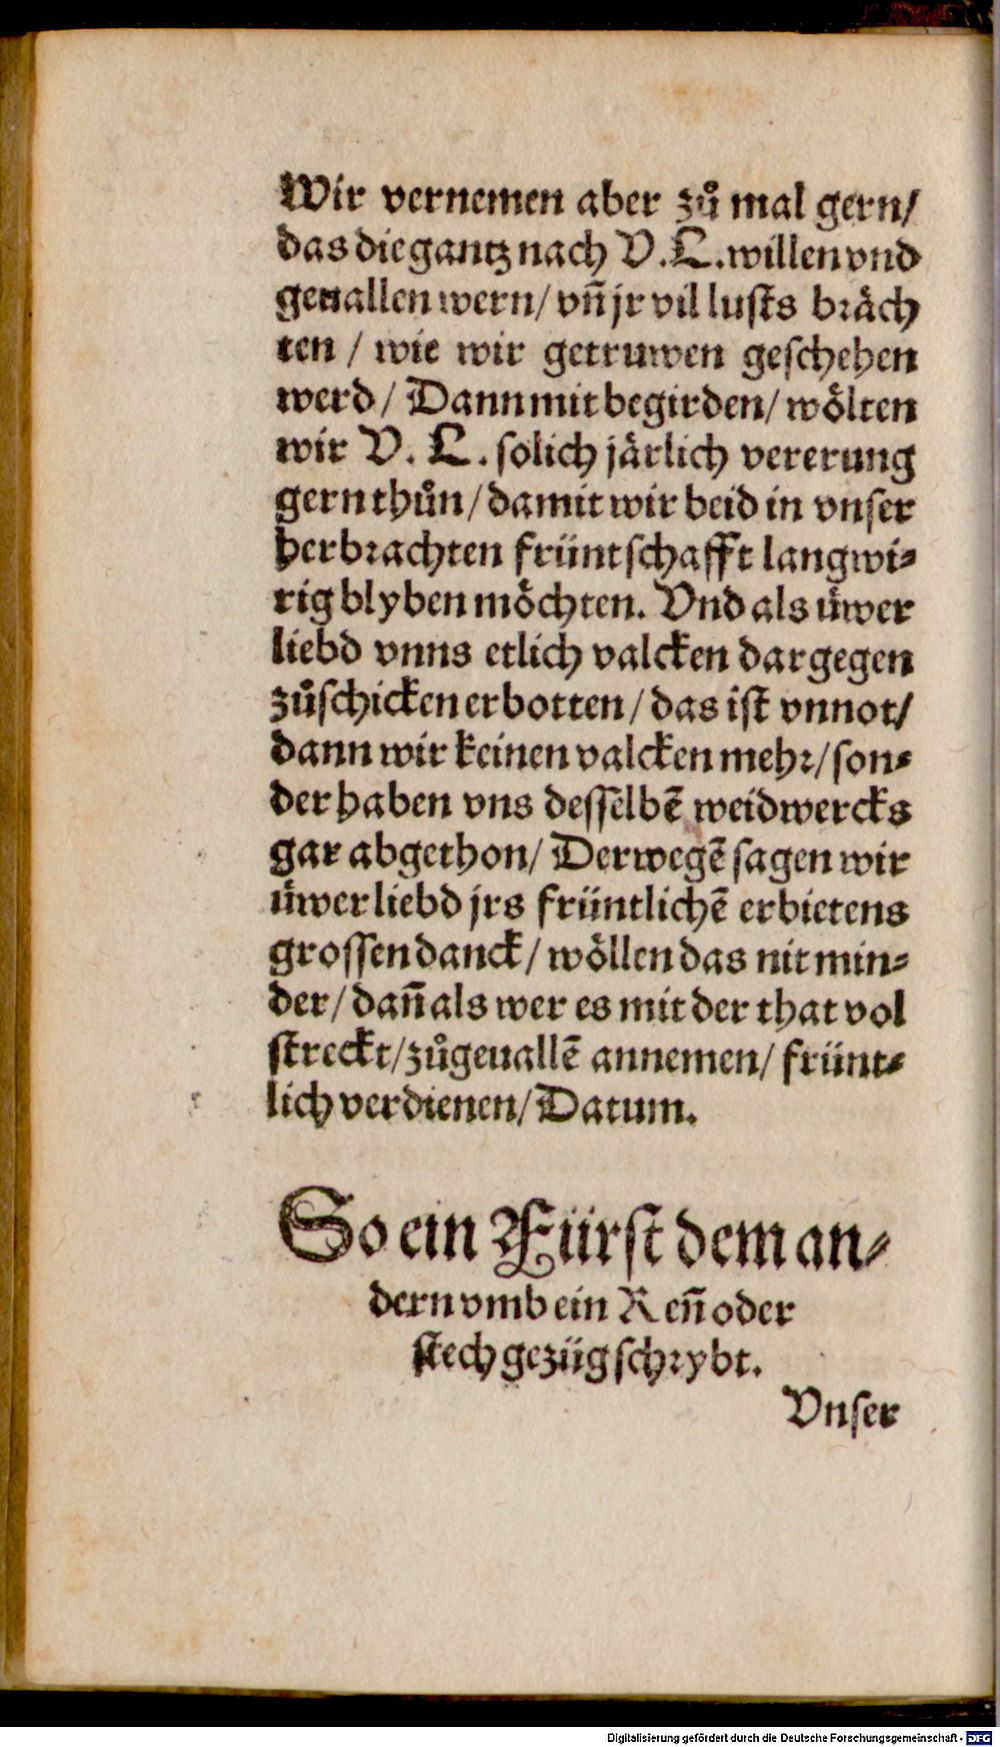 Wir vernemen aber zů mal gern/
das die gantz nach V. L. willen vnd
geuallen wern/ vñ jr vil lusts bräch
ten / wie wir getruwen geschehen
werd/ Dann mit begirden/ wölten
wir V. L. solich järlich vererung
gern thůn/ damit wir beid in vnser
herbrachten früntschafft langwi⸗
rig blyben möchten. Vnd als üwer
liebd vnns etlich valcken dargegen
zůschicken erbotten/ das ist vnnot/
dann wir keinen valcken mehr/ son⸗
der haben vns desselbẽ weidwercks
gar abgethon/ Derwegẽ sagen wir
üwer liebd jrs früntlichẽ erbietens
grossen danck/ wöllen das nit min⸗
der/ dañ als wer es mit der that vol
streckt/ zůgeuallẽ annemen/ frünt⸗
lich verdienen/ Datum.
So ein Fürst dem an⸗
dern vmb ein Reñ oder
stech gezüg schrybt.
Vnser
Digitalisierung gefördert durch die Deutsche Forschungsgemeinschaft - DFG